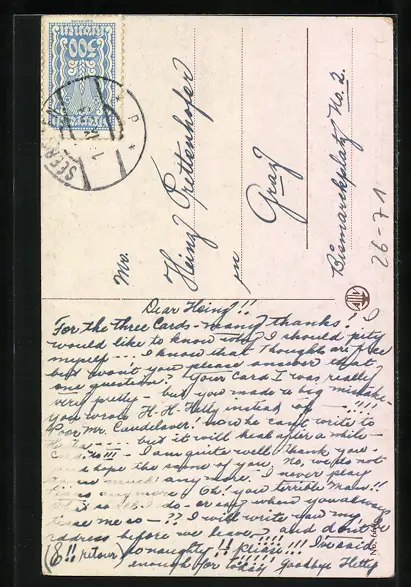 500
Mr.
Heinz Prettenhofer
in
Graz
Bismarckplatz No. 2.
26-71
Dear Heinz!!
For the three Cards - many thanks! I
would like to know why I should pity
myself --- I know that Thoughts are free
but won't you please answer that
one question? Your Card I was really
very pretty - but you made a big mistake
you wrote H. H. Hetty instead of --- !!!!
Poor Mr. Candelaber! now he can't write to
but it will heal after a while -
!!! - I am quite well thank you -
hope the same of you. No, we do not
much any more. I never play
any more. Oh! you terrible Man!!
do - or say when you always
tease me so - ?? I will write you my
address before we leave, and don't be
so naughty!! please!!! I've said
enough for today Goodbye Hetty